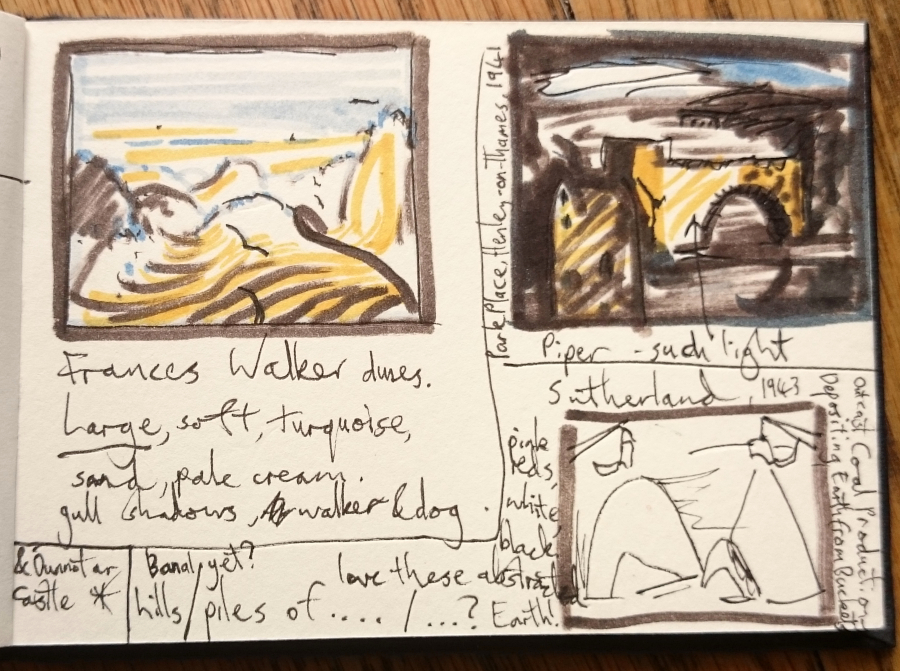 Frances Walker dunes.
Large, soft, turquoise,
sand, pale cream.
gull shadows, walker & dog.
& Dunnotar
Castle *
Banal, yet?
hills/piles of .... / ...?
love these abstracted
Earth!
Park Place, Henley-on-Thames, 1941
Piper - such light
Sutherland, 1943
pink
reds,
white,
black
Outcast Coal Production
Depositing Earth from Buckets